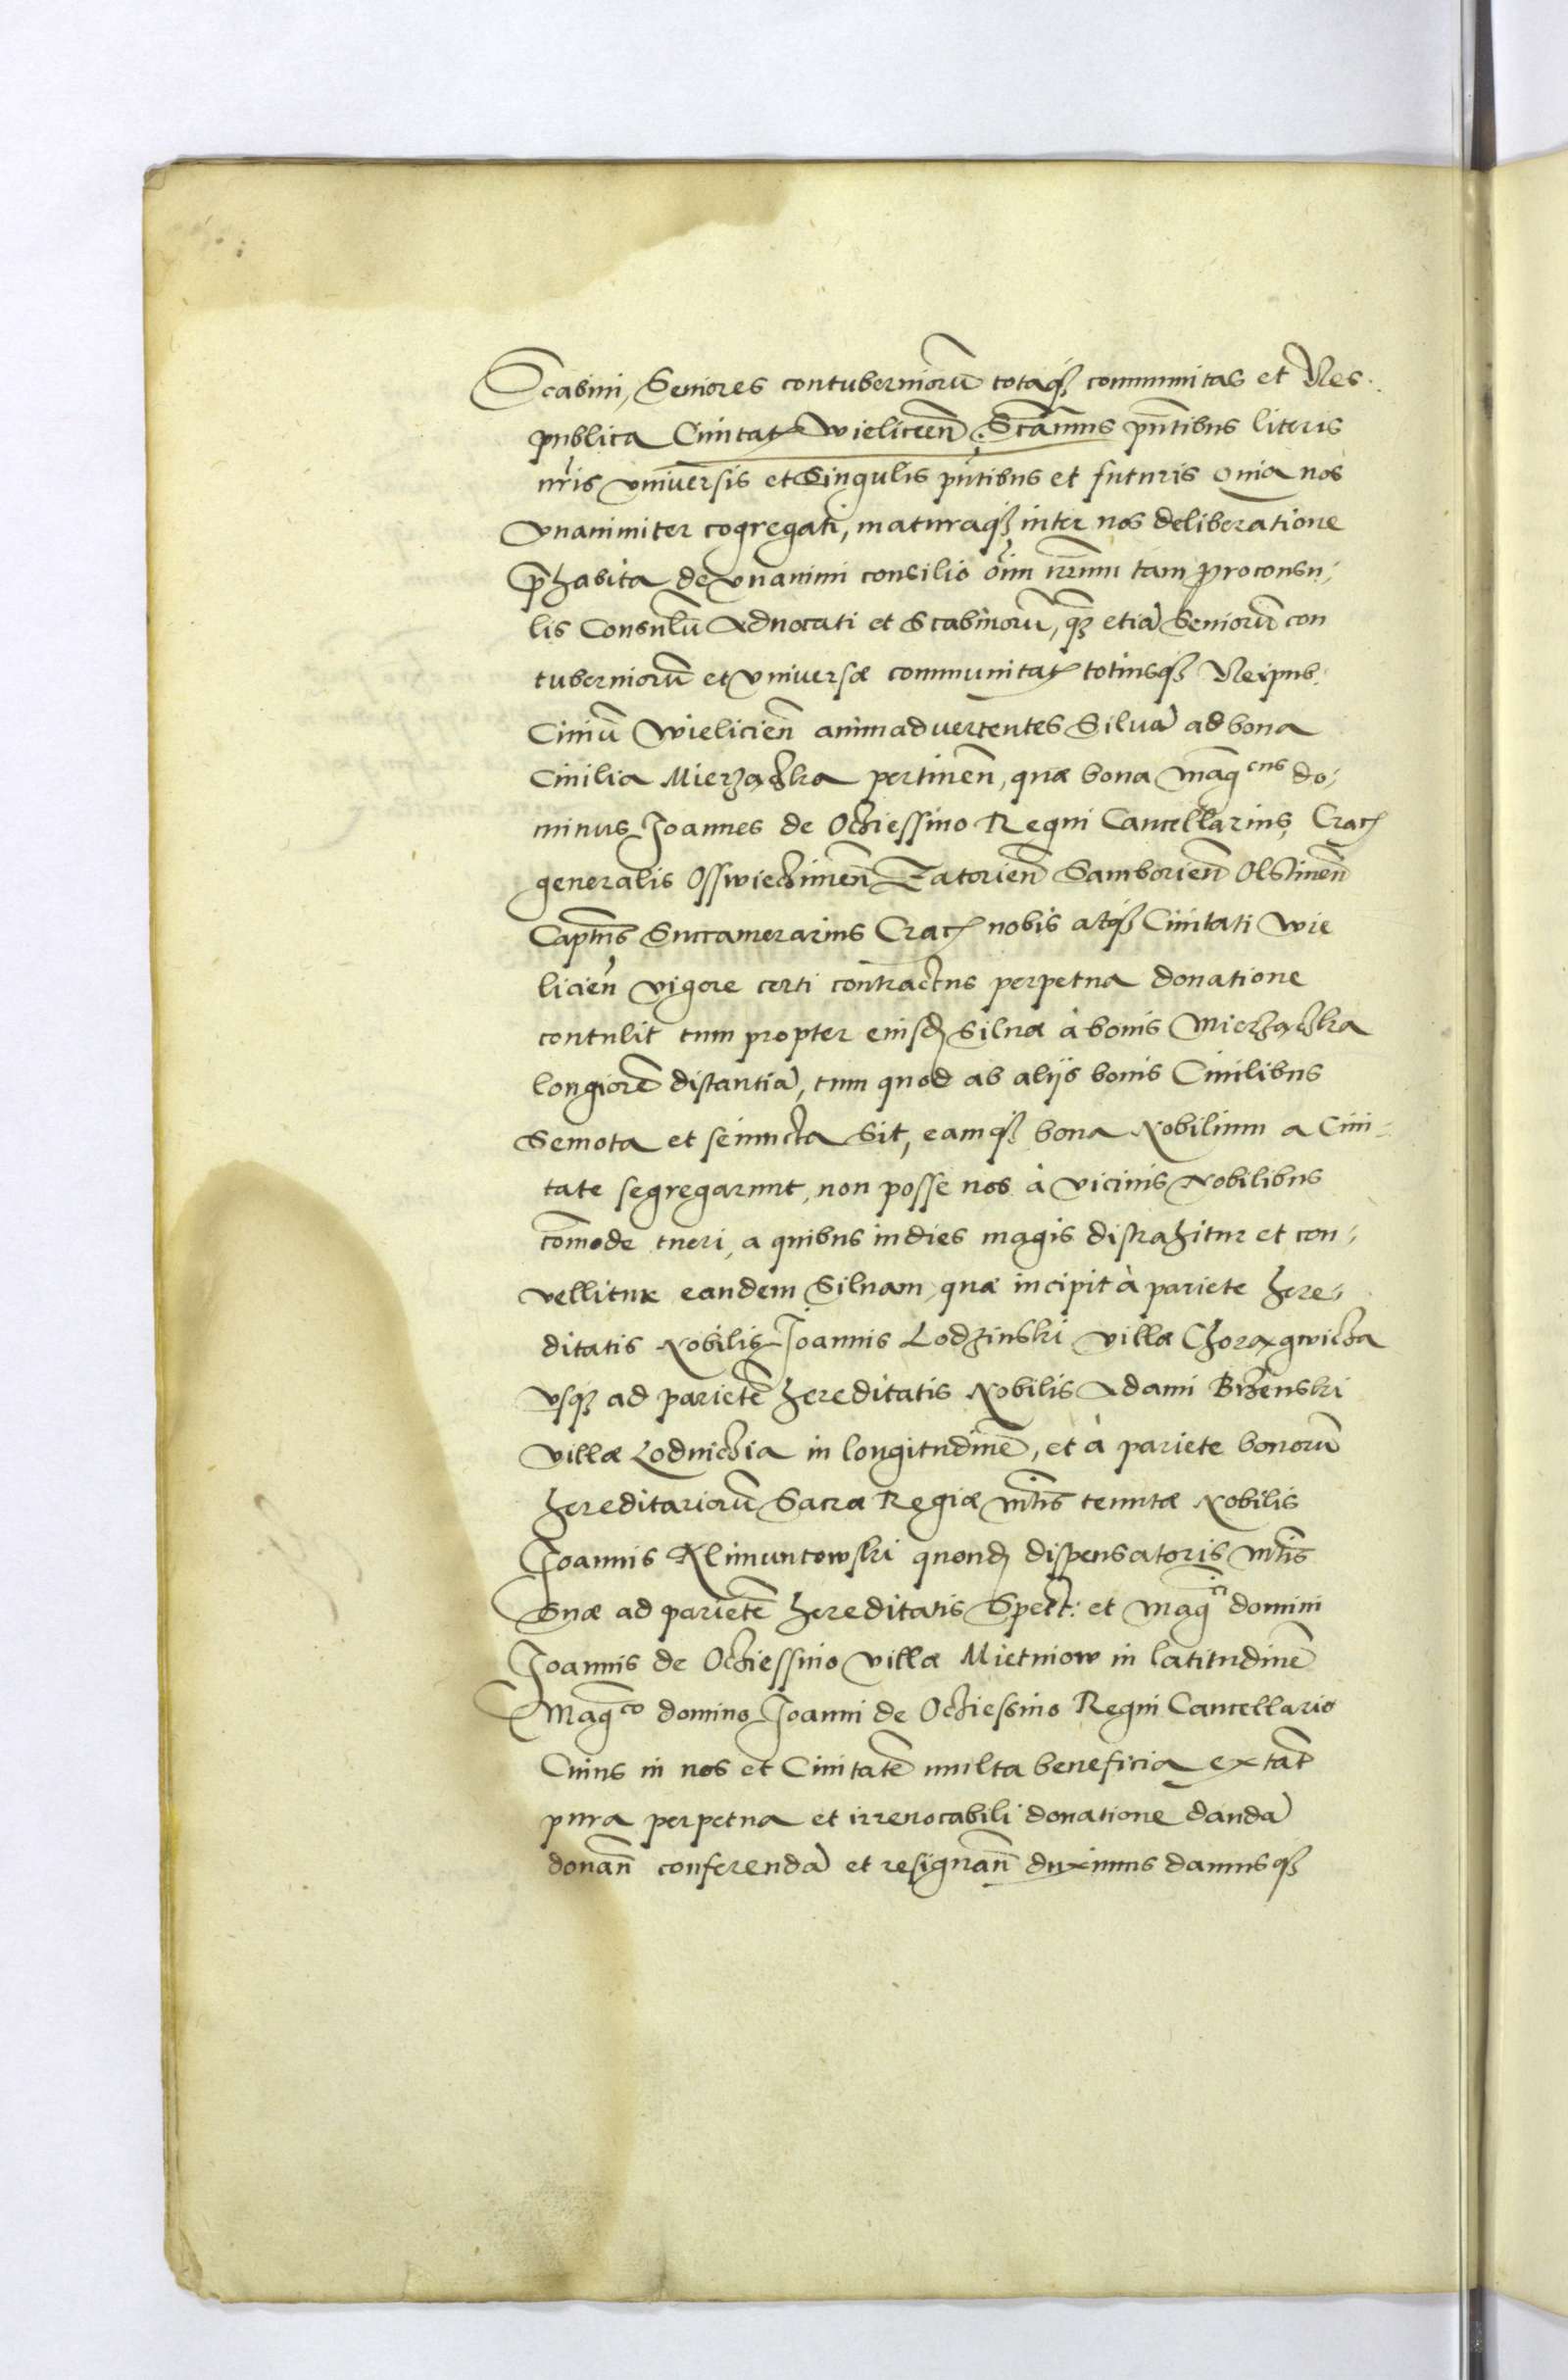 Scabini, Seniores contuberniorū totaq₃ communitas et Res
publica Ciuitat Wieliceen̄. Scāmus pn̄tibus literis
nr̄is vniuersis et Singulis pn̄tibus et futuris Quia nos
Vnanimiter cogregati, maturaq₃ inter nos deliberatione
p̄habita de vnanimi consilio oīm nr̄mm tam proconsu,
lis Consulū Aduocati et Scabinorū, q₃ etiā Seniorū con
tuberniorū et vniuersæ communitat totiusq₃ Reipub:
Ciuiū Wielicien̄ animaduertentes Siluā ad bona
Ciuilia Mierzączka pertinen̄, quæ bona maḡcus do,
minus Joannes de Ochiessino Regni Cancellarius, Crac
generalis Osswiechimen̄ Zatorien̄ Samborien̄ Olstinen̄
Capt̄ns Succamerarius Crac nobis atq₃ Ciuitati Wie
licien̄ vigore certi contractus perpetua donatione
contulit tum propter eiusd Siluæ à bonis Mierzączka
longiorē distantiā, tum quod ab alijs bonis Ciuilibus
Semota et seiuncta Sit, eamq₃ bona Nobilium a Ciui-
tate segregarunt, non posse nos à vicinis Nobilibus
com̄ode tueri, a quibus indies magis distrahitur et con,
vellitur eandem Siluam, quæ incipit à pariete here,
ditatis Nobilis Joannis Lodzinski villæ Chorągwicza
vsq₃ ad parietē hereditatis Nobilis Adami Brzenski
villæ Lednichia in longitudinē, et à pariete bonorū
hereditariorū Sacræ Regiæ mt̄is tenutæ Nobilis
Joannis Klimuntowski quond dispensatoris mt̄is
Suæ ad parietē hereditatis Spect: et maḡci domini
Joannis de Ochiessino villæ Mietniow in latitudinē
Maḡco domino Joanni de Ochiessino Regni Cancellario
Cuius in nos et Ciuitatē multa beneficia extāt
pura perpetua et irreuocabili donatione dandā
donan̄ conferendā et resignan̄ duximus damusq₃